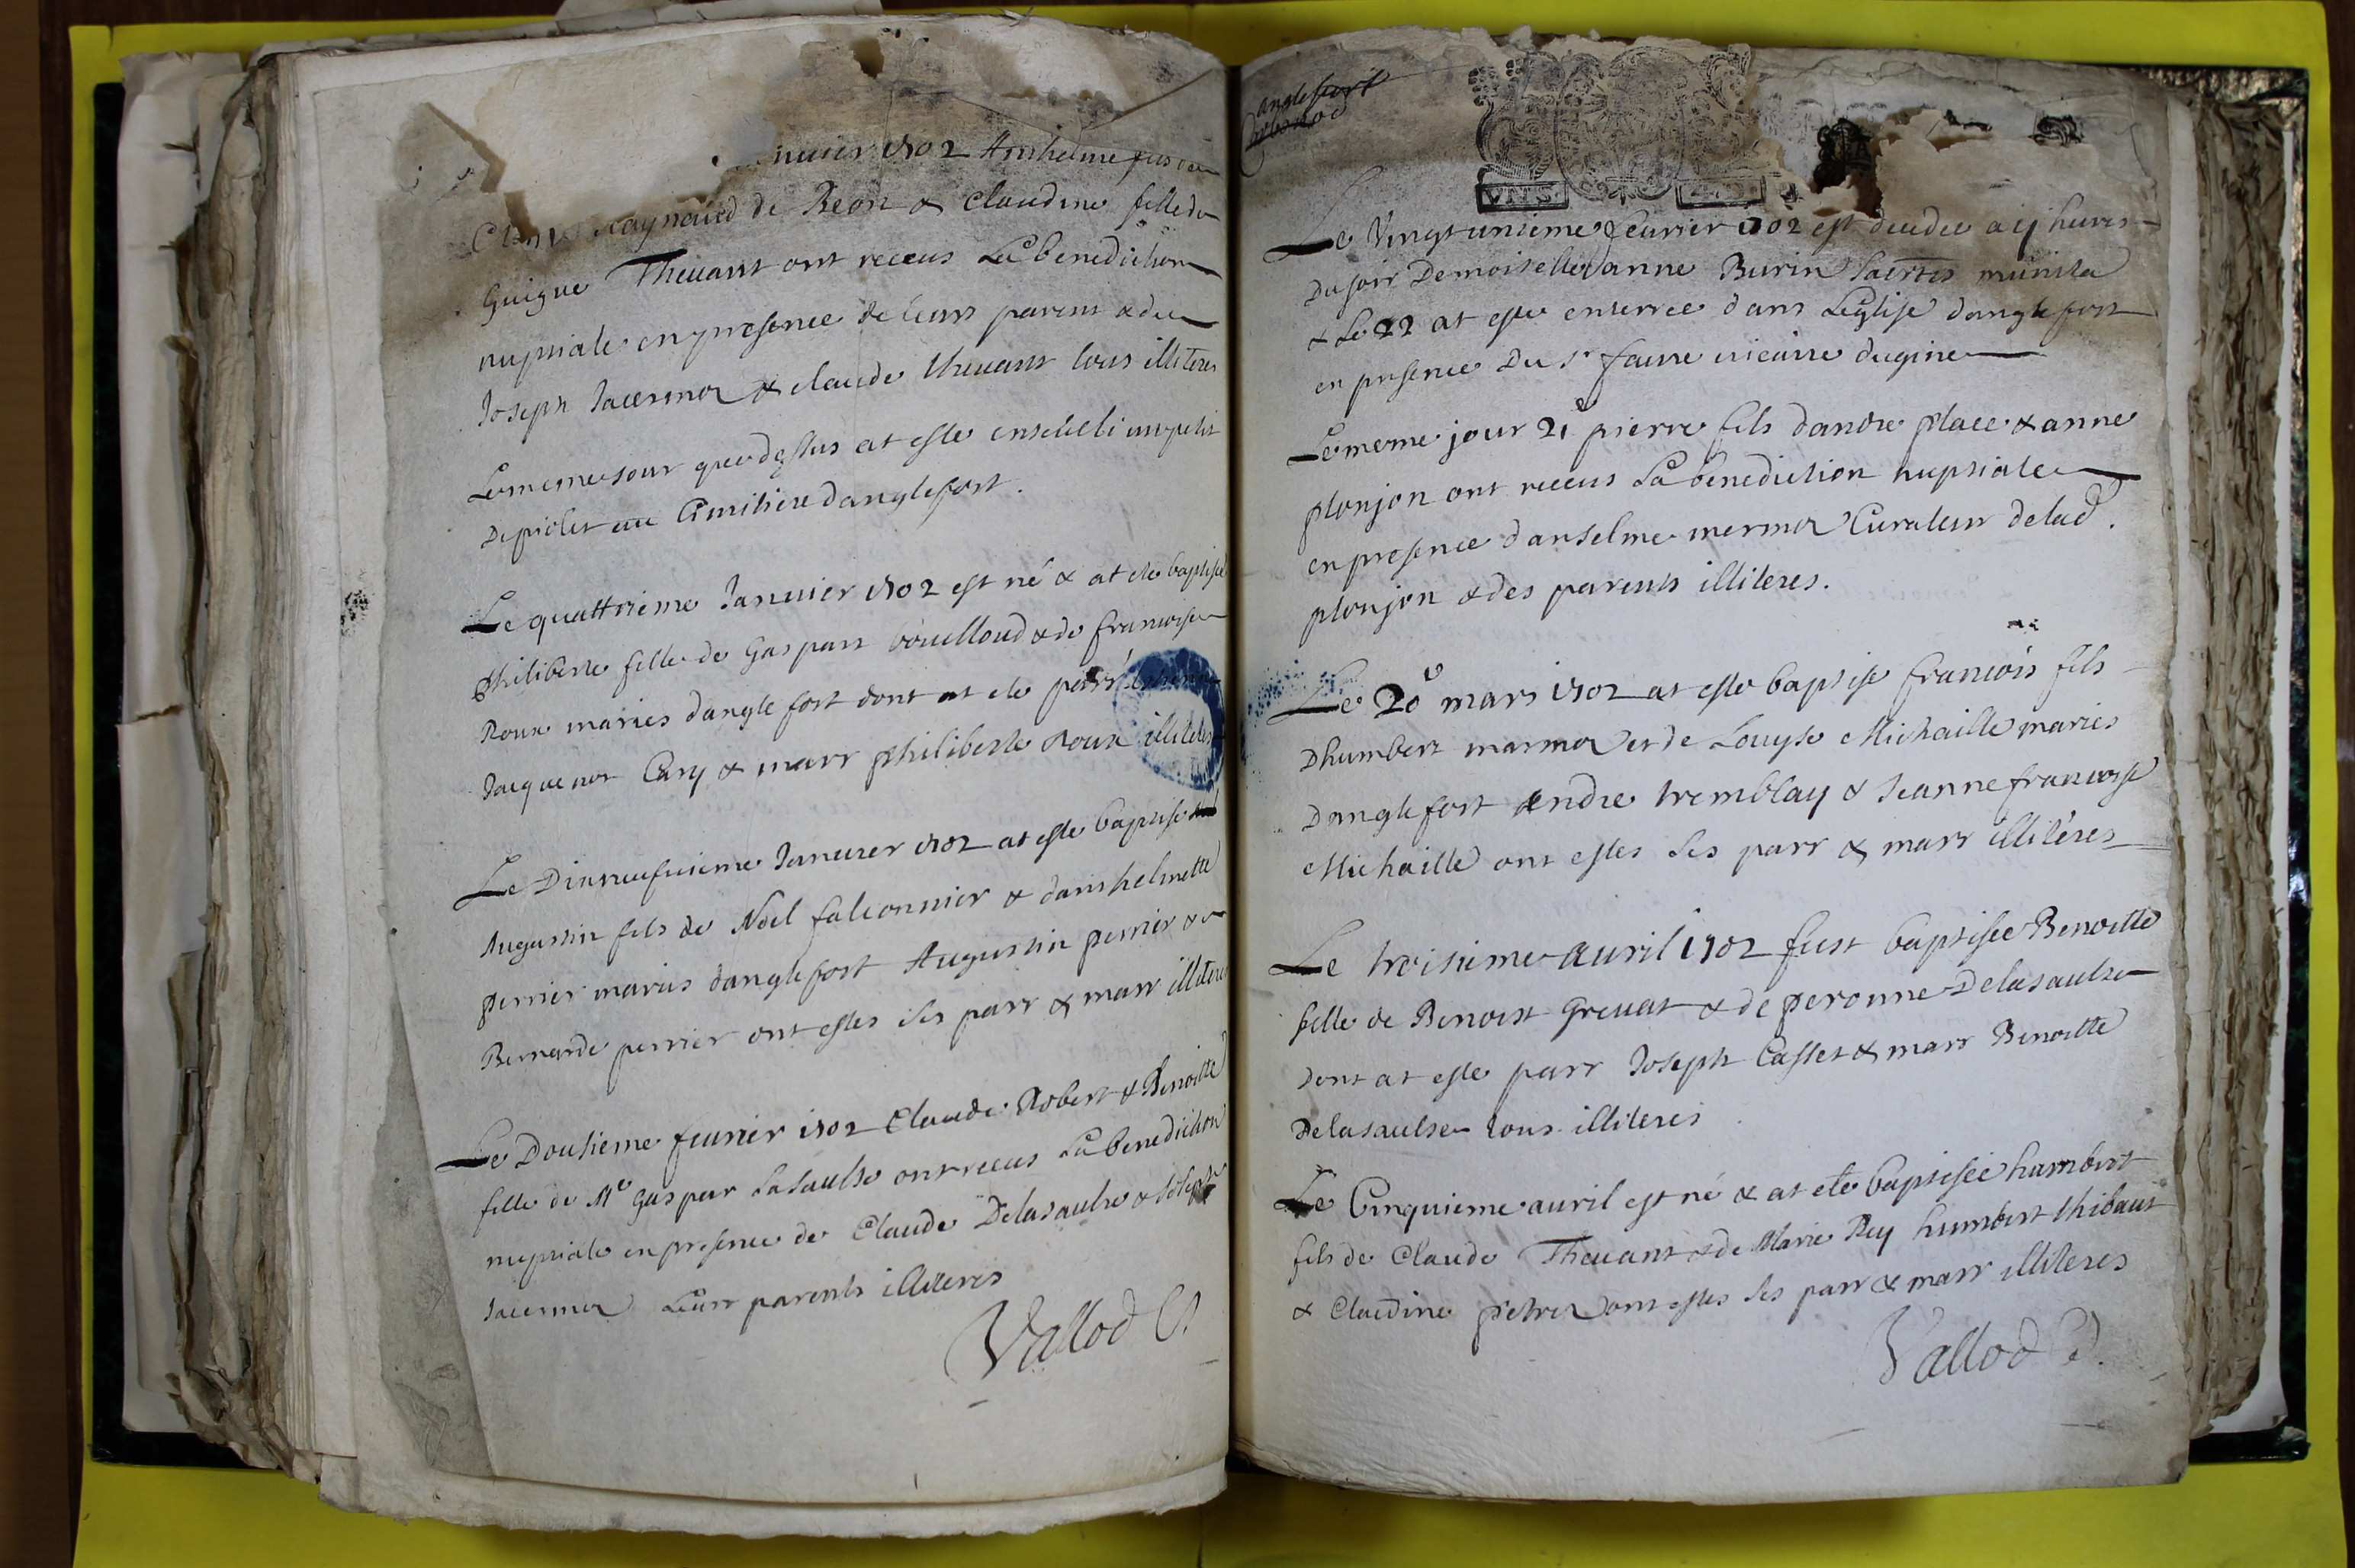 nuier 1702 Anthelme fils de
Raynaud de Beon & Claudine fille de
Guigue Theuant ont receus La benediction
nupsiale en presence de leurs parens & de
Joseph Jacermoz & claude theuant tous illiteres
Le meme jour que dessus at este enseueli un petit
Depiolet au Cimitiere danglefort.
Le quattrieme Januier 1702 est né & at ete baptisé
Philiberte fille de Gaspart bouilloud & de francoyse
Roux maries danglefort dont at ete parr
Jacquemot Cary & marr philiberte Roux illiteres
Le Dixneufuieme Januier 1702 at este baptise
Augustin fils de Noel falconnier & danthelmette
perrier maries danglefort Augustin perrier &
Bernarde perrier ont estes ses parr & marr illiteres
Le Dousieme feurier 1702 Claude Robert & Benoitte
fille de Me Gaspar Lasaulse ont receus La benediction
nupsiale en presence de Claude Delasaulse & Joseph
Jacermoz Leurs parents illiteres
Vallod C.
anglefort
VNS
Le Vingtunieme feurier 1702 est decedee a ij heures
Du soir Demoiselle Janne Burin sacrtis munita
& Le 22 at este enterree dans Leglise danglefort
en presence Du sr faure vicaire dugine
Le meme jour 21e pierre fils dandre place & anne
plonjon ont receus La benediction nupsiale
en presence danselme mermoz Curateur delad.
plonjon & des parents illiteres.
Le 20e mars 1702 at este baptise francois fils
Dhumbert marmoz et de Louyse Michaille maries
Danglefort Andre tremblay & Jeanne francoyse
Michaille ont estes ses parr & marr illiteres
Le troisieme auril 1702 fust baptisée Benoitte
fille de Benoist Greuat & de peronne Delasaulse
Dont at este parr Joseph Casset & marr Benoitte
Delasaulse tous illiteres
Le Cinquieme auril est né & at ete baptisée humbert
fils de Claude Theuant & de Marie Rey humbert thibaut
& Claudine pétroz ont estes ses parr & marr illiteres
Vallod C.